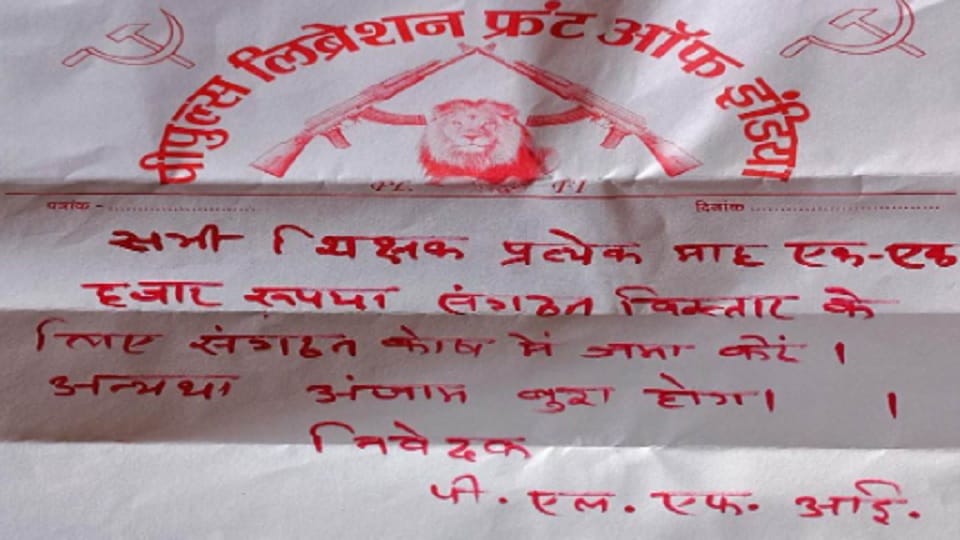 पीपुल्स लिब्रेशन फ्रंट ऑफ इंडिया
पत्रांक - ..............................
दिनांक ..............................
सभी शिक्षक प्रत्येक माह एक-एक
हजार रूपया संगठन विस्तार के
लिए संगठन कोष में जमा करें ।
अन्यथा अंजाम बुरा होगा। ।
निवेदक
पी. एल. एफ. आई.